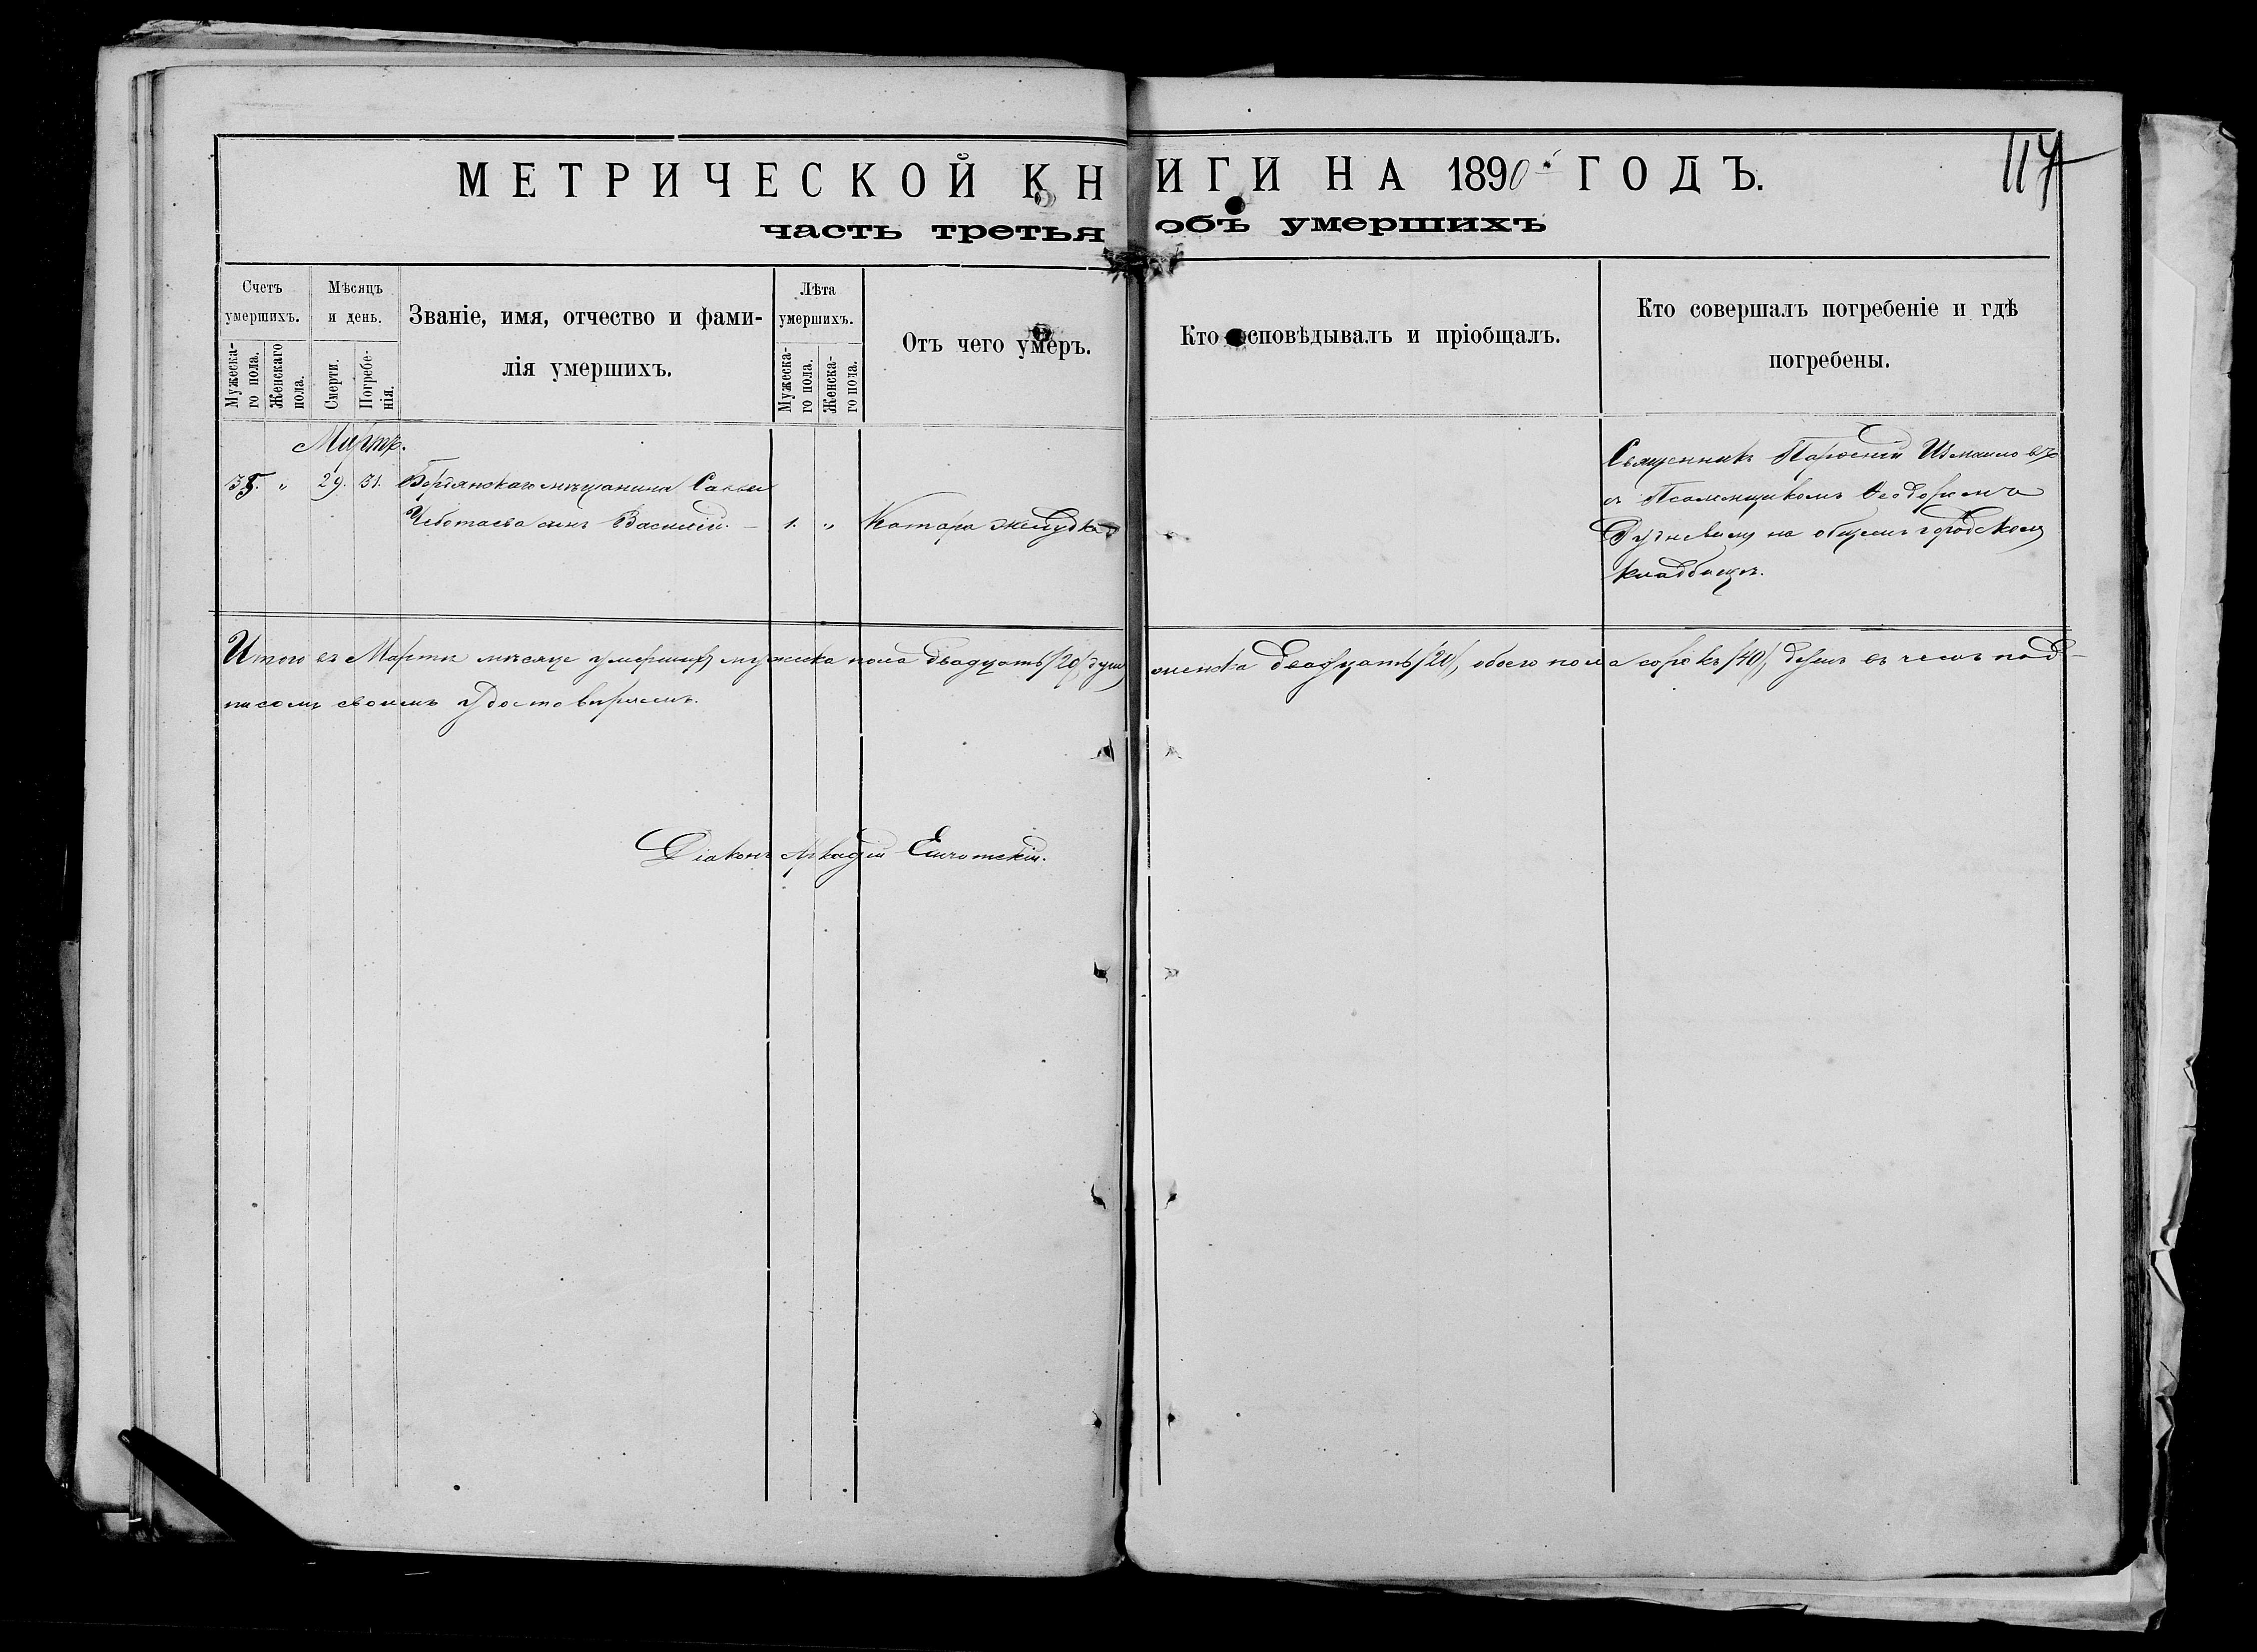 117
МЕТРИЧЕСКОЙ КНИГИ НА 1890 ГОДЪ.
часть третья объ умершихъ
Счетъ умершихъ.
Мужеска-
го пола.
Женскаго
пола.
Мѣсяцъ
и день.
Смерти.
Погребе-
нія.
Званіе, имя, отчество и фами-
лія умершихъ.
Лѣта
умершихъ.
Мужеска-
го пола.
Женска-
го пола.
Отъ чего умеръ.
Кто исповѣдывалъ и пріобщалъ.
Кто совершалъ погребеніе и гдѣ
погребены.
Мартъ.
35. „ 29. 31. Бердянскаго мѣщанина Саввы
Чеботаева сынъ Василій. — 1. „ Катара желудка
Священникъ Измаиловъ
съ Псаломщикомъ Ѳеодоромъ
на общемъ городскомъ
кладбищѣ.
Итого въ Мартѣ мѣсяце умершихъ мужска пола двадцать /20/ душъ женска двадцать /20/, обоего пола сорокъ /40/, душъ въ чемъ под-
писомъ своимъ удостовѣряемъ.
Діаконъ Аркадій